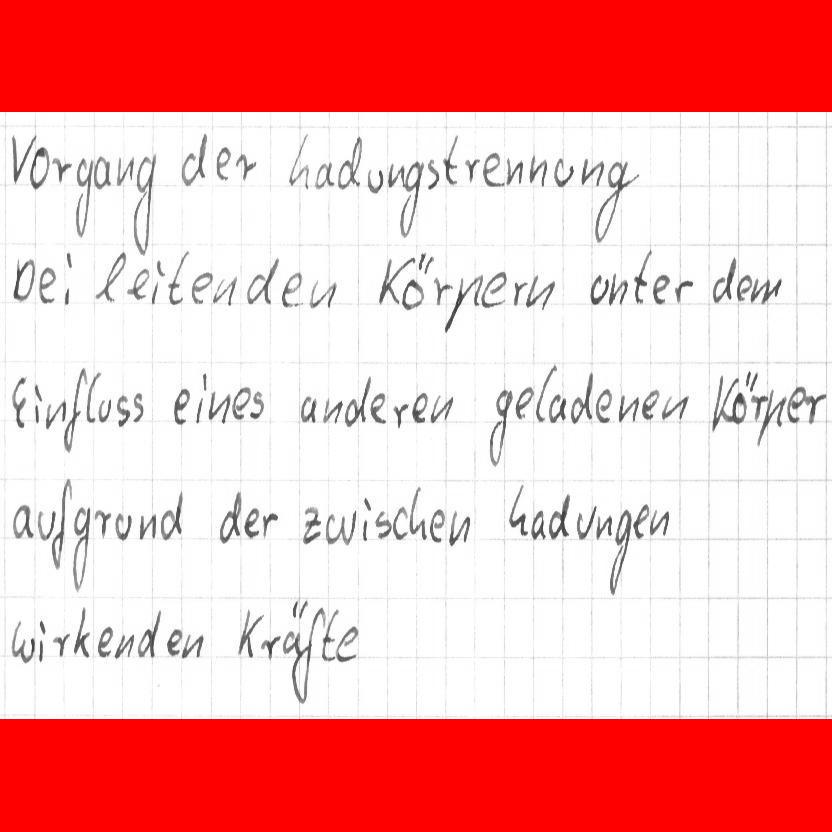 Vorgang der Ladungstrennung
bei leitenden Körpern unter dem
Einfluss eines anderen geladenen Körper
aufgrund der zwischen Ladungen
wirkenden Kräfte